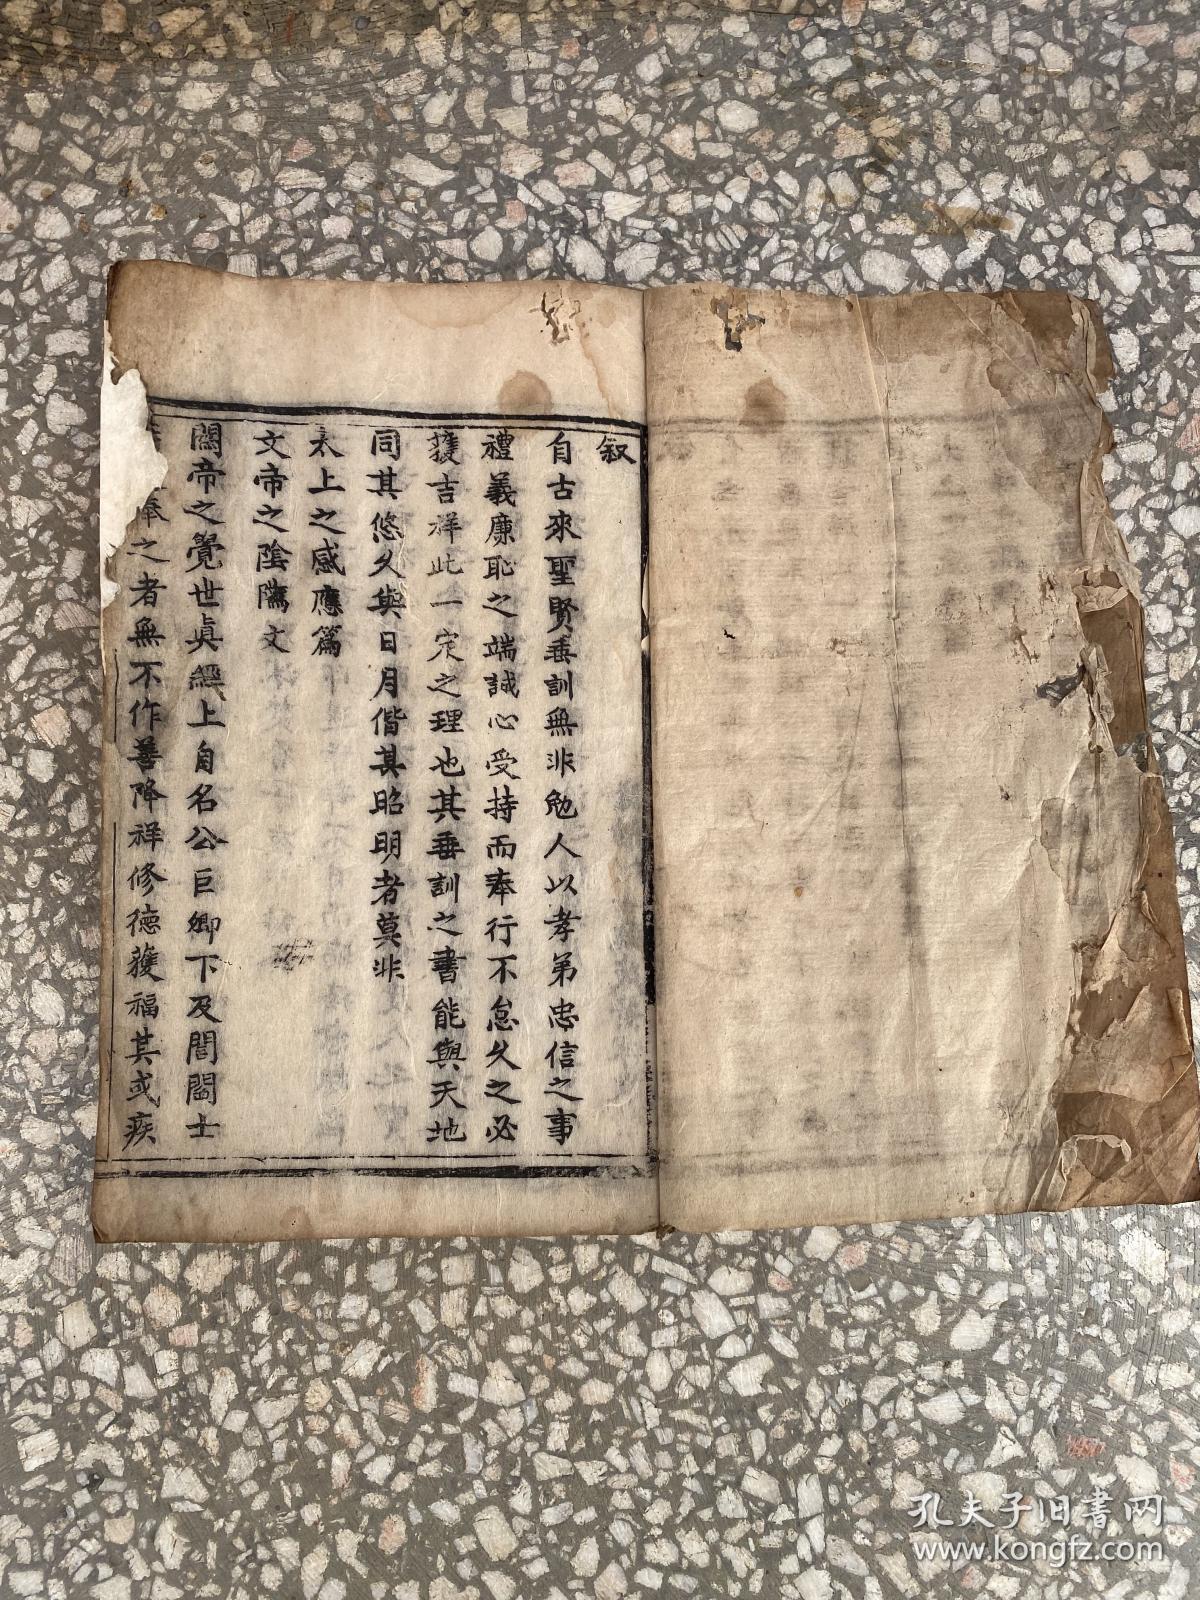 叙
自古來聖賢垂訓無非勉人以孝弟忠信之事
禮義廉恥之端誠心受持而奉行不怠久之必
獲吉祥此一定之理也其垂訓之書能與天地
同其悠久與日月偕其昭明者莫非
太上之感應篇
文帝之陰隲文
關帝之覺世真經上自名公巨卿下及閭閻士
奉之者無不作善降祥修德獲福其或疾
孔夫子旧书网
www.kongfz.com